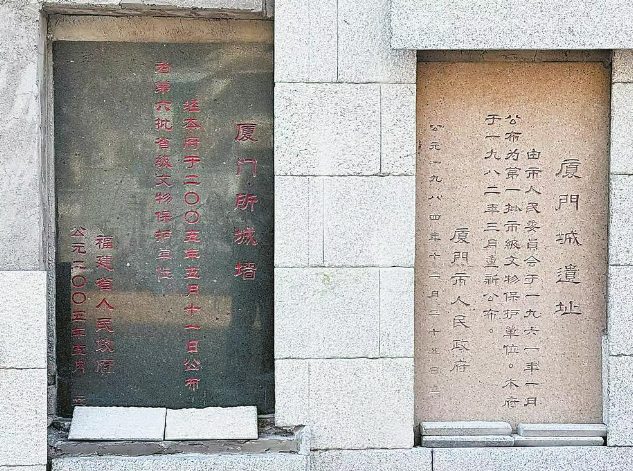 厦门所城墙
经本府于二〇〇五年五月十一日公布
为第六批省级文物保护单位
福建省人民政府
公元二〇〇五年五月
厦门城遺址
由市人民委员会于一九六一年一月
公布为第一批市级文物保护单位。本府
于一九八二年三月重新公布。
厦门市人民政府
公元一九八四年十二月二十五日立